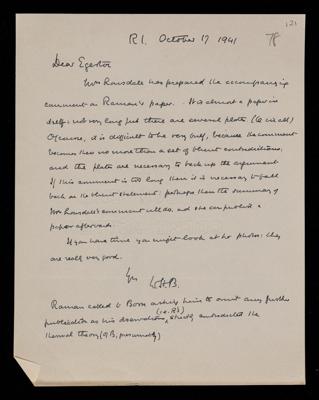 121
78
R I. October 17 1941
Dear Egerton
Mrs Lonsdale has prepared the accompanying
comment on Raman's paper. It is almost a paper in
itself: not very long but there are several plates (6 in all)
Of course, it is difficult to be very brief, because the comment
becomes then no more than a set of blunt contradictions;
and the plates are necessary to back up the argument.
If this comment is too long then it is necessary to fall
back on the blunt statement: perhaps then the summary of
Mrs Lonsdale's comment will do, and she can publish a
paper afterwards.
If you have time you might look at her photos: they
are really very good.
Yrs
W.H.B.
Raman cabled to Born asking him to omit any further
publication as his observations (i.e. R's) directly contradicted the
thermal theory (of B, presumably)